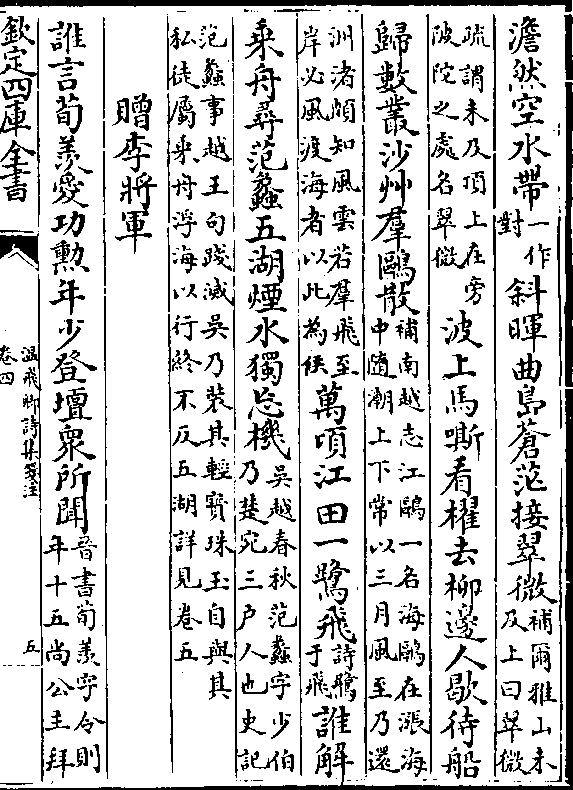 澹然空水帶一作對斜暉曲島蒼茫接翠微補爾雅山未及上曰翠微
疏謂未及頂上在旁陂陀之處名翠微波上馬嘶看櫂去柳邊人歇待船
歸數叢沙艸羣鷗散補南越志江鷗一名海鷗在漲海中隨潮上下常以三月風至乃還
洲渚頗知風雲若羣飛至岸必風渡海者以此為候萬頃江田一鷺飛詩鷺于飛誰解
乘舟尋范蠡五湖煙水獨忘機吳越春秋范蠡字少伯乃楚宛三户人也史記
范蠡事越王句踐滅吳乃裝其輕寶珠玉自與其私徒屬乘舟浮海以行終不反五湖詳見卷五
贈李將軍
誰言荀羨愛功勲年少登壇衆所聞晉書荀羨字令則年十五尚公主拜
欽定四庫全書
溫飛卿詩集箋注
卷四
五